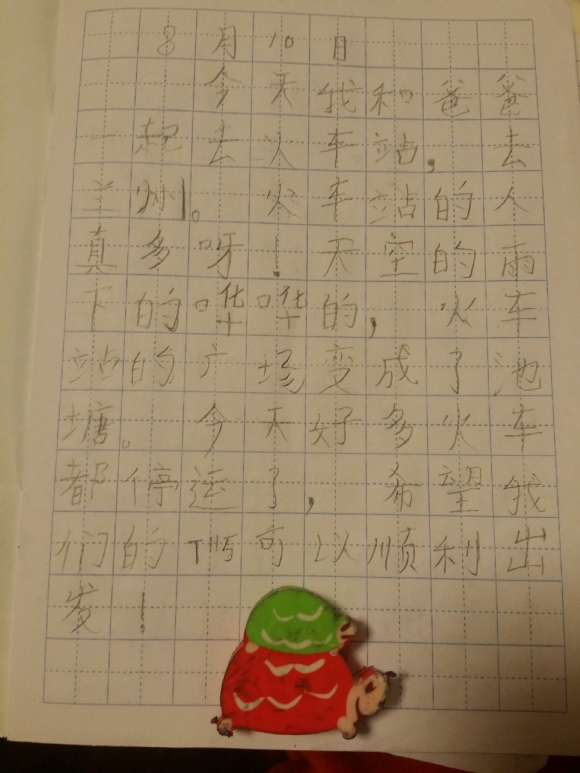 8月10日
今天我和爸爸
一起去火车站，去
兰州。火车站的人
真多呀！天空的雨
下的哗哗的，火车
站的广场变成了池
塘。今天好多火车
都停运了，希望我
们的T115可以顺利出
发！